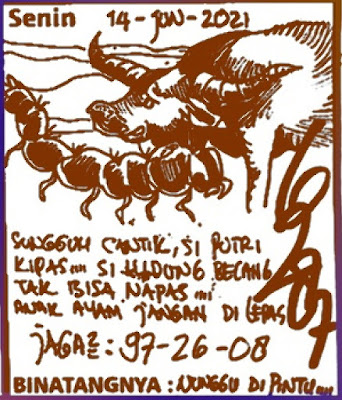 Senin 14-JUN-2021
SUNGGUH CANTIK, SI PUTRI
KIPAS.... SI HIDUNG BECANG
TAK BISA NAPAS....
ANAK AYAM JANGAN DI LEPAS
JAGA2 : 97-26-08
BINATANGNYA : NUNGGU DI PINTU....